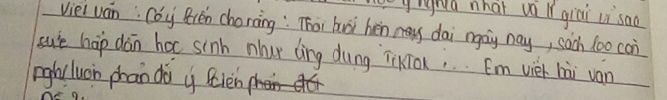 ý nghĩa nhất và lí giải vì sao
viết văn : Có ý kiến cho rằng : Thời buổi hiện nay dại ngày nay, sách loo còn
sức hấp dẫn học sinh như ứng dụng TikTok ... Em viết bài văn
nghị luận phản đối ý kiến phản đối